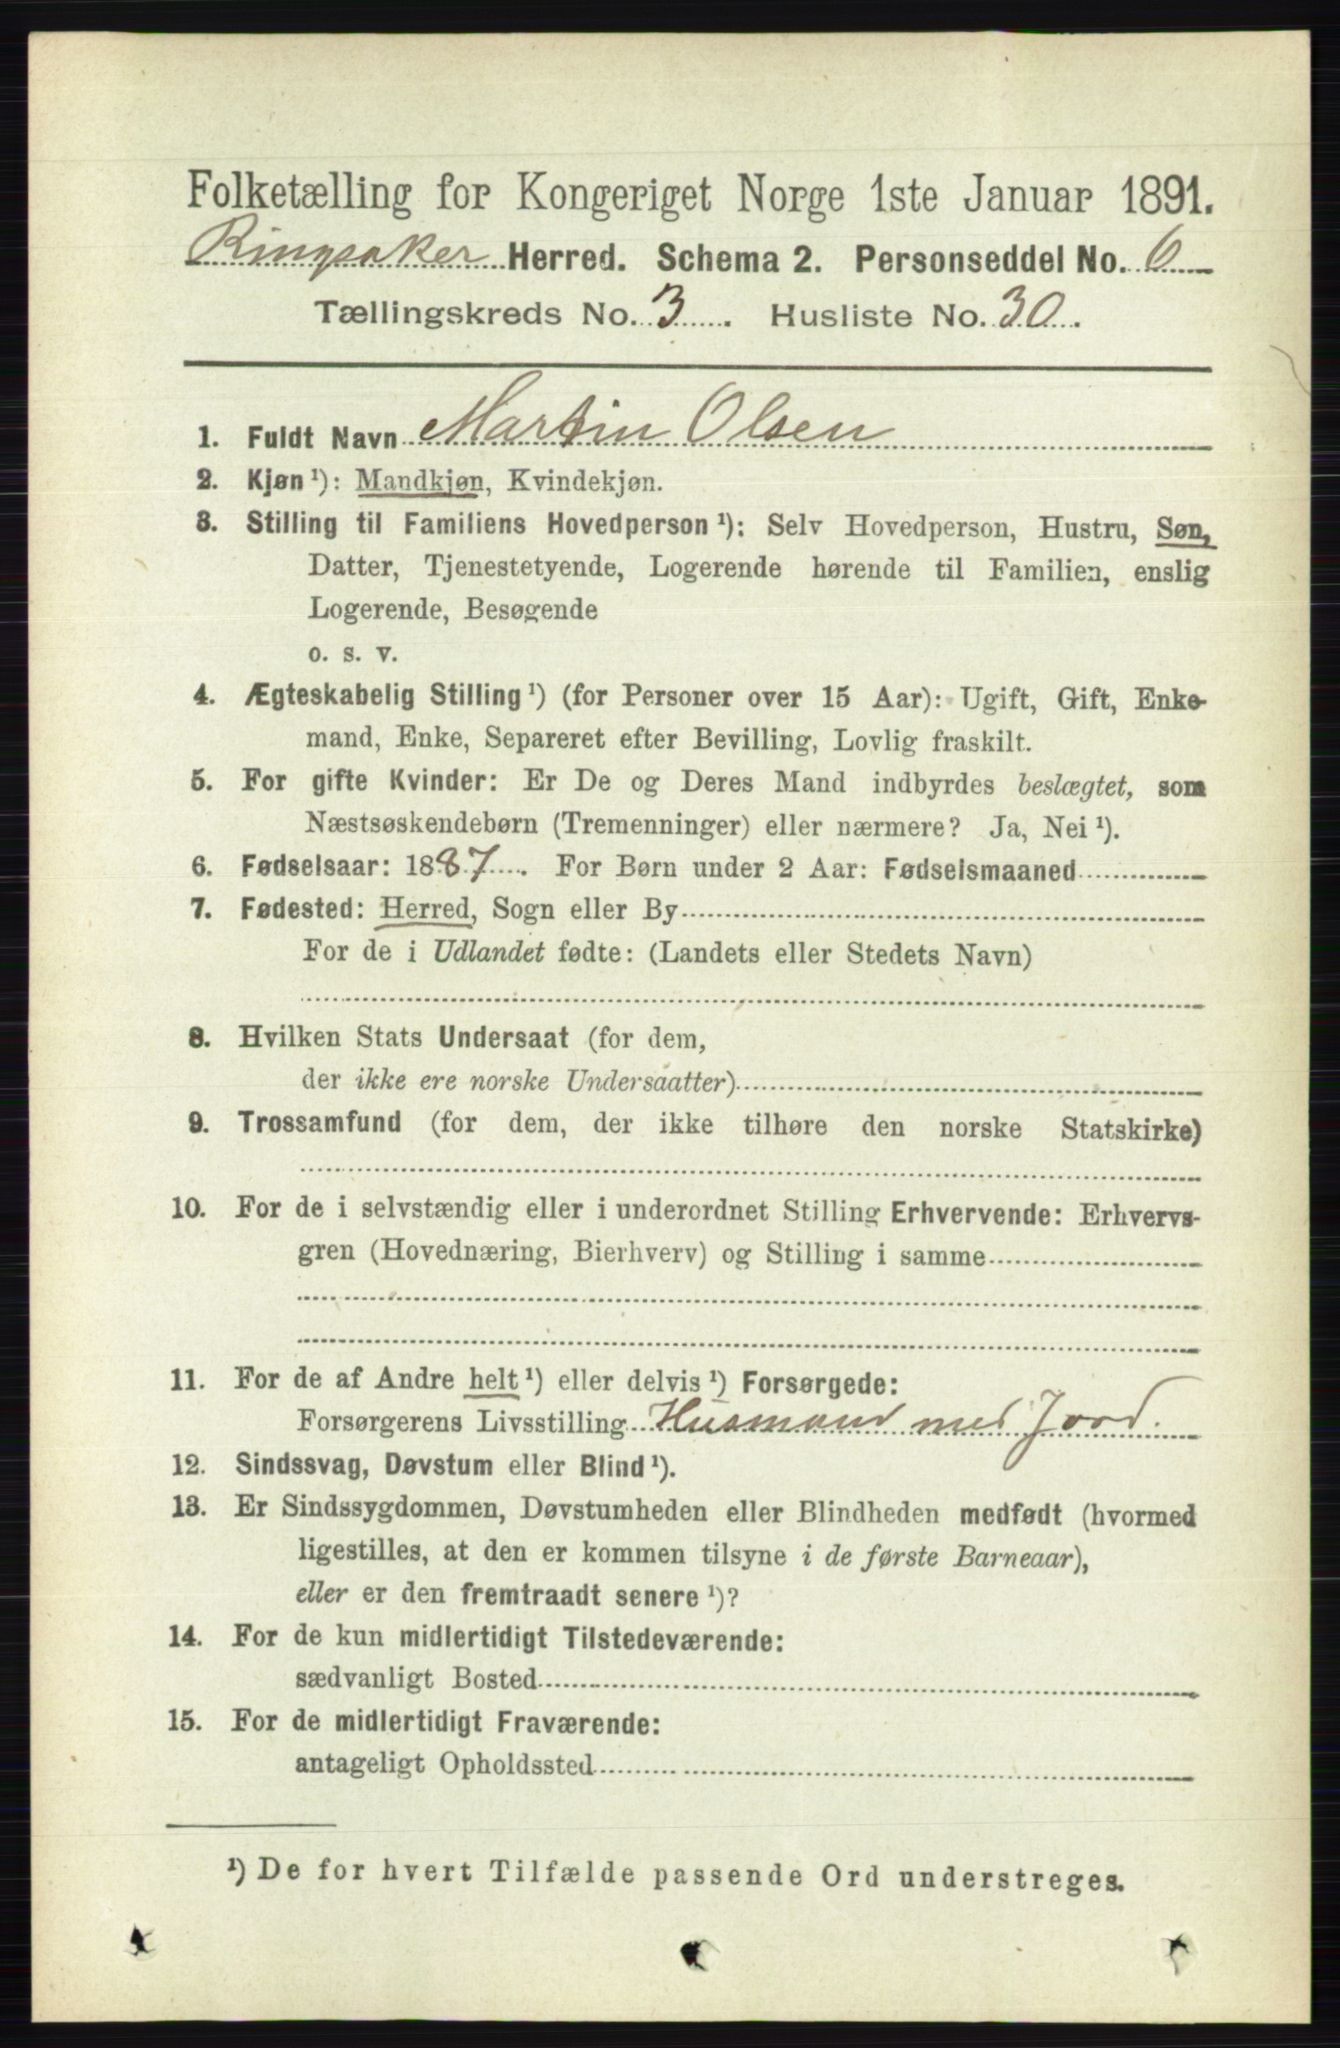 Folketælling for Kongeriget Norge 1ste Januar 1891.
Ringsaker Herred. Schema 2. Personseddel No. 6
Tællingskreds No. 3. Husliste No. 30.
1. Fuldt Navn Martin Olsen
2. Kjøn ¹): Mandkjøn, Kvindekjøn.
3. Stilling til Familiens Hovedperson ¹): Selv Hovedperson, Hustru, Søn,
Datter, Tjenestetyende, Logerende hørende til Familien, enslig
Logerende, Besøgende
o. s. v.
4. Ægteskabelig Stilling ¹) (for Personer over 15 Aar): Ugift, Gift, Enke-
mand, Enke, Separeret efter Bevilling, Lovlig fraskilt.
5. For gifte Kvinder: Er De og Deres Mand indbyrdes beslægtet, som
Næstsøskendebørn (Tremenninger) eller nærmere? Ja, Nei ¹).
6. Fødselsaar: 1887. For Børn under 2 Aar: Fødselsmaaned
7. Fødested: Herred, Sogn eller By
For de i Udlandet fødte: (Landets eller Stedets Navn)
8. Hvilken Stats Undersaat (for dem,
der ikke ere norske Undersaatter)
9. Trossamfund (for dem, der ikke tilhøre den norske Statskirke)
10. For de i selvstændig eller i underordnet Stilling Erhvervende: Erhvervs-
gren (Hovednæring, Bierhverv) og Stilling i samme
11. For de af Andre helt ¹) eller delvis ¹) Forsørgede:
Forsørgerens Livsstilling Husmand med Jord.
12. Sindssvag, Døvstum eller Blind ¹).
13. Er Sindssygdommen, Døvstumheden eller Blindheden medfødt (hvormed
ligestilles, at den er kommen tilsyne i de første Barneaar),
eller er den fremtraadt senere ¹)?
14. For de kun midlertidigt Tilstedeværende:
sædvanligt Bosted
15. For de midlertidigt Fraværende:
antageligt Opholdssted
¹) De for hvert Tilfælde passende Ord understreges.